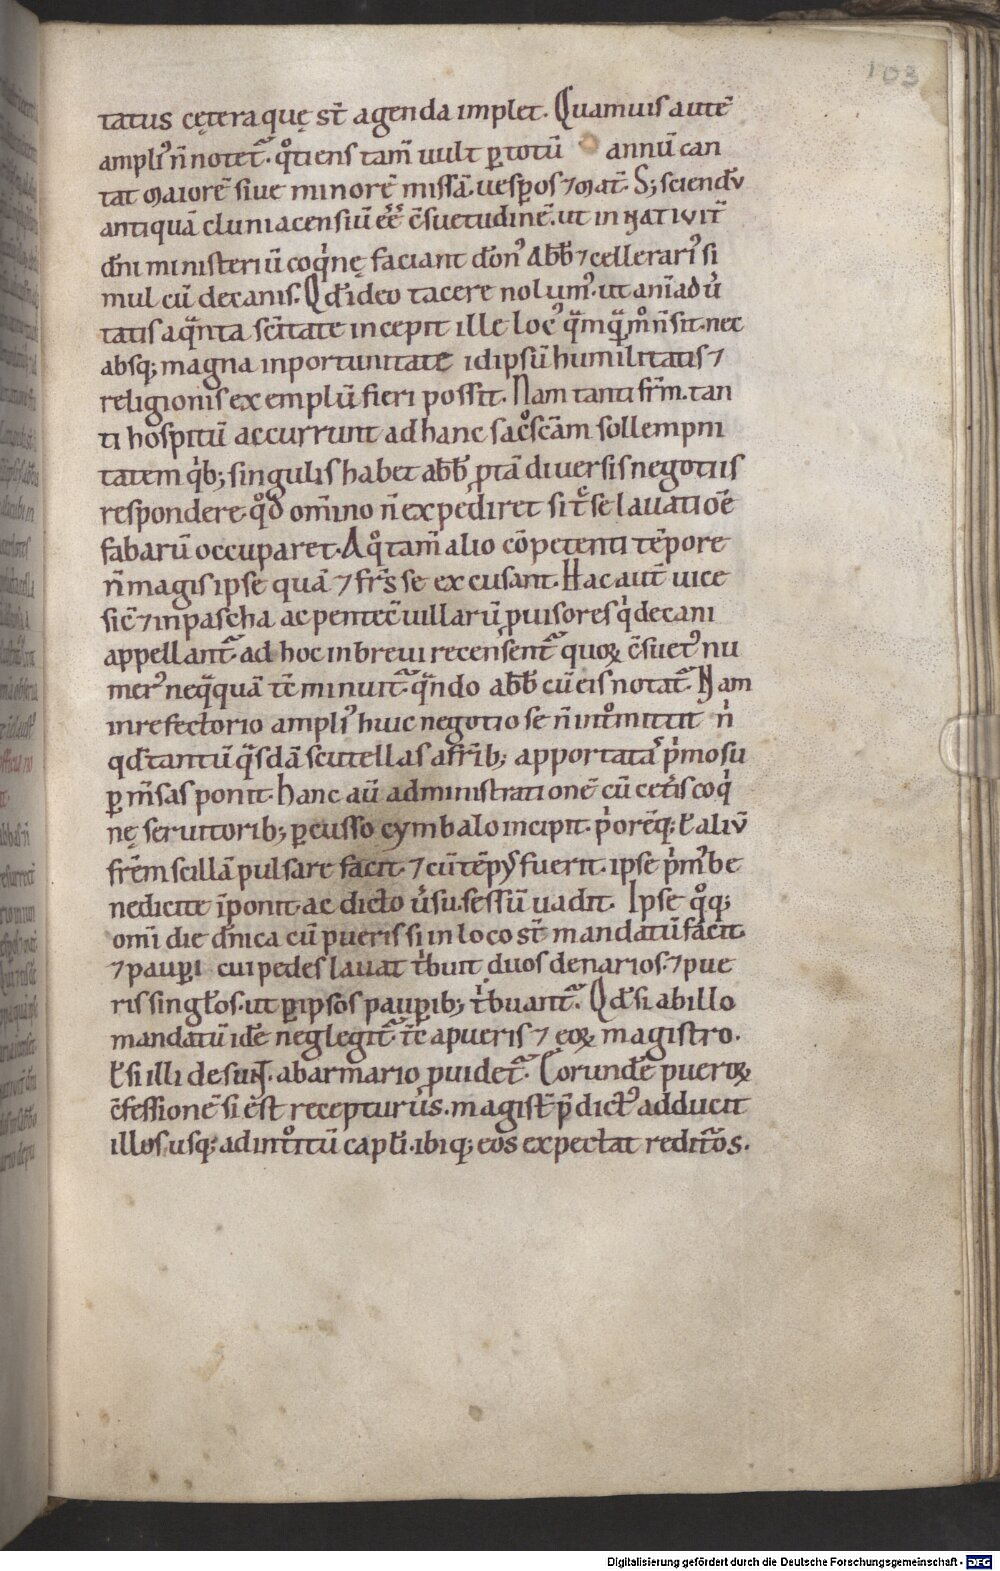 103
tatus cęteraquę st̄ agenda implet. Quamuis autē
ampliꝰ n̄ notet᷑. qͦtiens tam̄ uult ꝑ totū annū can
tat maiorē siue minorē missā. uesꝑos ⁊ mat̄. S; sciendū
antiquā cluniacensiū eē c̄suetudinē. ut in natiuit̄
dn̄i ministeriū coqⁱnę faciant don̄ꝰ abb̄ ⁊ cellerariꝰ si
mul cū decanis. Qd̄ ideo tacere nolumꝰ. ut anīaduͥ
tatis a qᷓnta sc̄itate incepit ille locꝰ qᷓm qᷓm mͦ n̄ sit. nec
absq; magna inportunitate idipsū humilitatis ⁊
religionis exemplū fieri possit. Nam tanti fr̄m. tan
ti hospitū accurrunt ad hanc sacͦsc̄am sollempni
tatem qⁱb; singulis habet abb̄ ꝓ tā diuersis negotiis
respondere. qͦd om̄ino n̄ expediret si t̄c se lauatiōe
fabarū occuparet. A qͦ tam̄ alio cōpetenti tēpore
n̄ magis ipse quā ⁊ fr̄s se excusant. Hac aut̄ uice
sic̄ ⁊ in pascha ac pentec̄ uillarū ꝓuisores qⁱ decani
appellant᷑. ad hoc in breui recensent᷑ quoꝝ c̄suetꝰ nu
merꝰ neqᷓquā tc̄ minuit᷑. qᷓndo abb̄ cū eis notat᷑. Nam
in refectorio ampliꝰ huic negotio se n̄ intͦmittit nͥ
qd̄ tantū qᷓsdā scutellas a fr̄ib; apportatas pⁱmo su
ꝑ m̄sas ponit. hanc aū administrationē cū cet̄is coqⁱ
nę seruitorib; ꝑcusso cymbalo incipit. pⁱoreq; ł aliū
fr̄em scillā pulsare facit. ⁊ cū tēpꝰ fuerit. ipse pⁱmꝰ be
nedicite īponit. ac dicto uͥsu. sessū uadit. Ipse qͦq;
omī die dn̄ica cū pueris si in loco st̄ mandatū facit.
⁊ pauꝑi cui pedes lauat tⁱbuit duos denarios. ⁊ pue
ris singłos. ut ꝑ ipsos pauꝑib; tⁱbuant᷑. Qd̄ si ab illo
mandatū idē neglegit᷑. tc̄ a pueris ⁊ eoꝝ magistro.
ł si illi desunt. ab armario ꝓuidet᷑. Corundē pueroꝝ
c̄fessionē si ē st receptur̄us. magist̄ p̄dictꝰ adducit
illos usq; ad intͦitū capłi. ibiq; eos expectat reditᷓos.
Digitalisierung gefördert durch die Deutsche Forschungsgemeinschaft - DFG